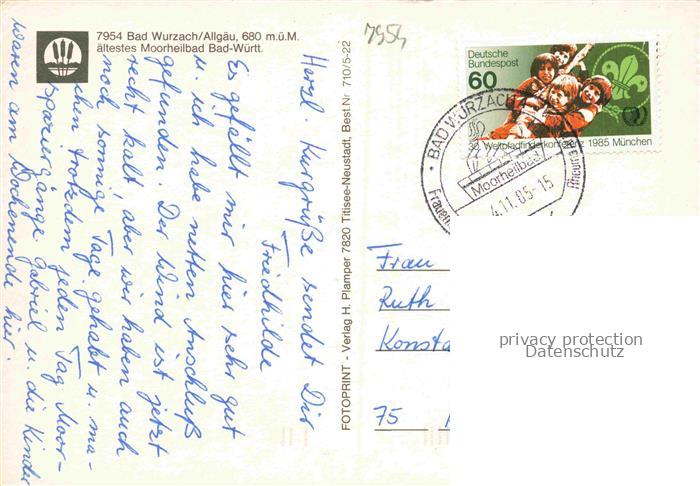 7954 Bad Wurzach/Allgäu, 680 m.ü.M.
ältestes Moorheilbad Bad-Württ.
7954
Herzl. Kurgrüße sendet Dir
Friedhilde
Es gefällt mir hier sehr gut
u. ich habe netten Anschluß
gefunden. Der Wind ist jetzt
recht kalt, aber wir haben auch
noch sonnige Tage gehabt u. ma-
chen trotzdem jeden Tag Moor-
spaziergänge. Gabriel u. die Kinder
waren am Wochenende hier.
FOTOPRINT - Verlag H. Plamper 7820 Titisee-Neustadt, Best.Nr 710/5-22
Deutsche
Bundespost
60
30. Weltpfadfinderkonferenz 1985 München
BAD WURZACH
Moorheilbad
4.11.85-15
Frauen
Rheuma
Frau
Ruth
Konsta
75
privacy protection
Datenschutz